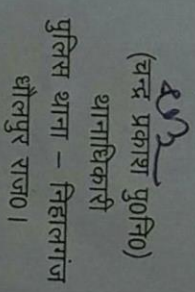 (चन्द्र प्रकाश पु०नि०)
थानाधिकारी
पुलिस थाना – निहालगंज
धौलपुर राज०।